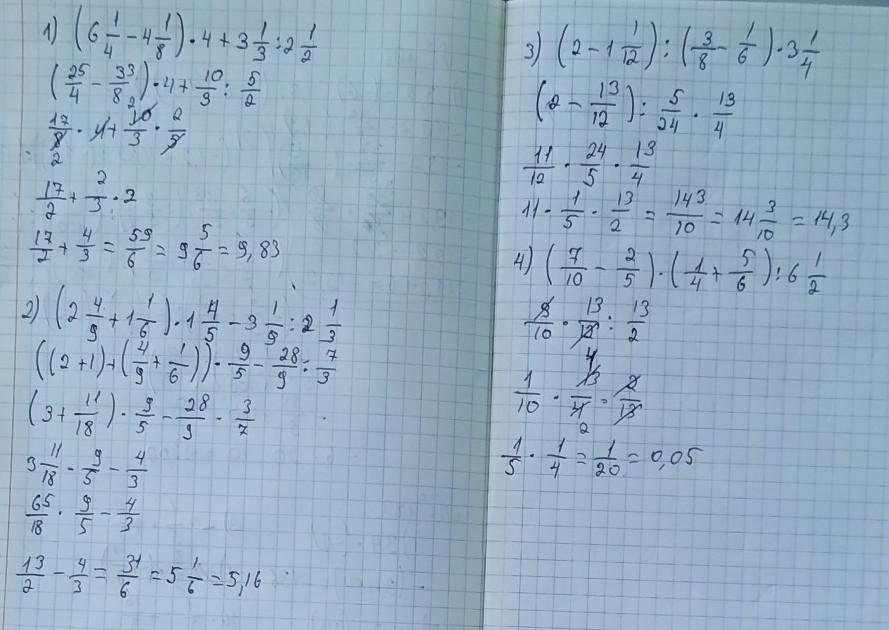 1) (6 1/4 - 4 1/8) · 4 + 3 1/3 : 2 1/2
(25/4 - 33/8) · 4 + 10/3 : 5/2
17/8 · 4 + 10/3 · 2/5
2
17/2 + 2/3 · 2
17/2 + 4/3 = 59/6 = 9 5/6 = 9,83
2) (2 4/9 + 1 1/6) · 1 4/5 - 3 1/9 : 2 1/3
((2 + 1) + (4/9 + 1/6)) · 9/5 - 28/9 : 7/3
(3 + 11/18) · 9/5 - 28/9 · 3/7
3 11/18 · 9/5 - 4/3
65/18 · 9/5 - 4/3
13/2 - 4/3 = 31/6 = 5 1/6 = 5,16
3) (2 - 1 1/12) : (3/8 - 1/6) · 3 1/4
(2 - 13/12) : 5/24 · 13/4
11/12 · 24/5 · 13/4
11 · 1/5 · 13/2 = 143/10 = 14 3/10 = 14,3
4) (7/10 - 2/5) · (1/4 + 5/6) : 6 1/2
3/10 · 13/12 : 13/2
4
1/10 · 13/4 · 2/13
2
1/5 · 1/4 = 1/20 = 0,05